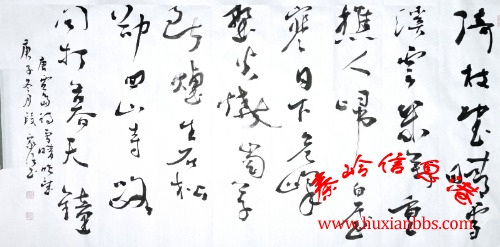 倚杖望晴雪
溪雲幾萬重
樵人歸白屋
寒日下危峰
野火燒岡草
斷煙生石松
却回山寺路
聞打暮天鐘
唐賈島詩雪晴晚望
庚子冬月段家
秦岭信息港
www.huxianbbs.com